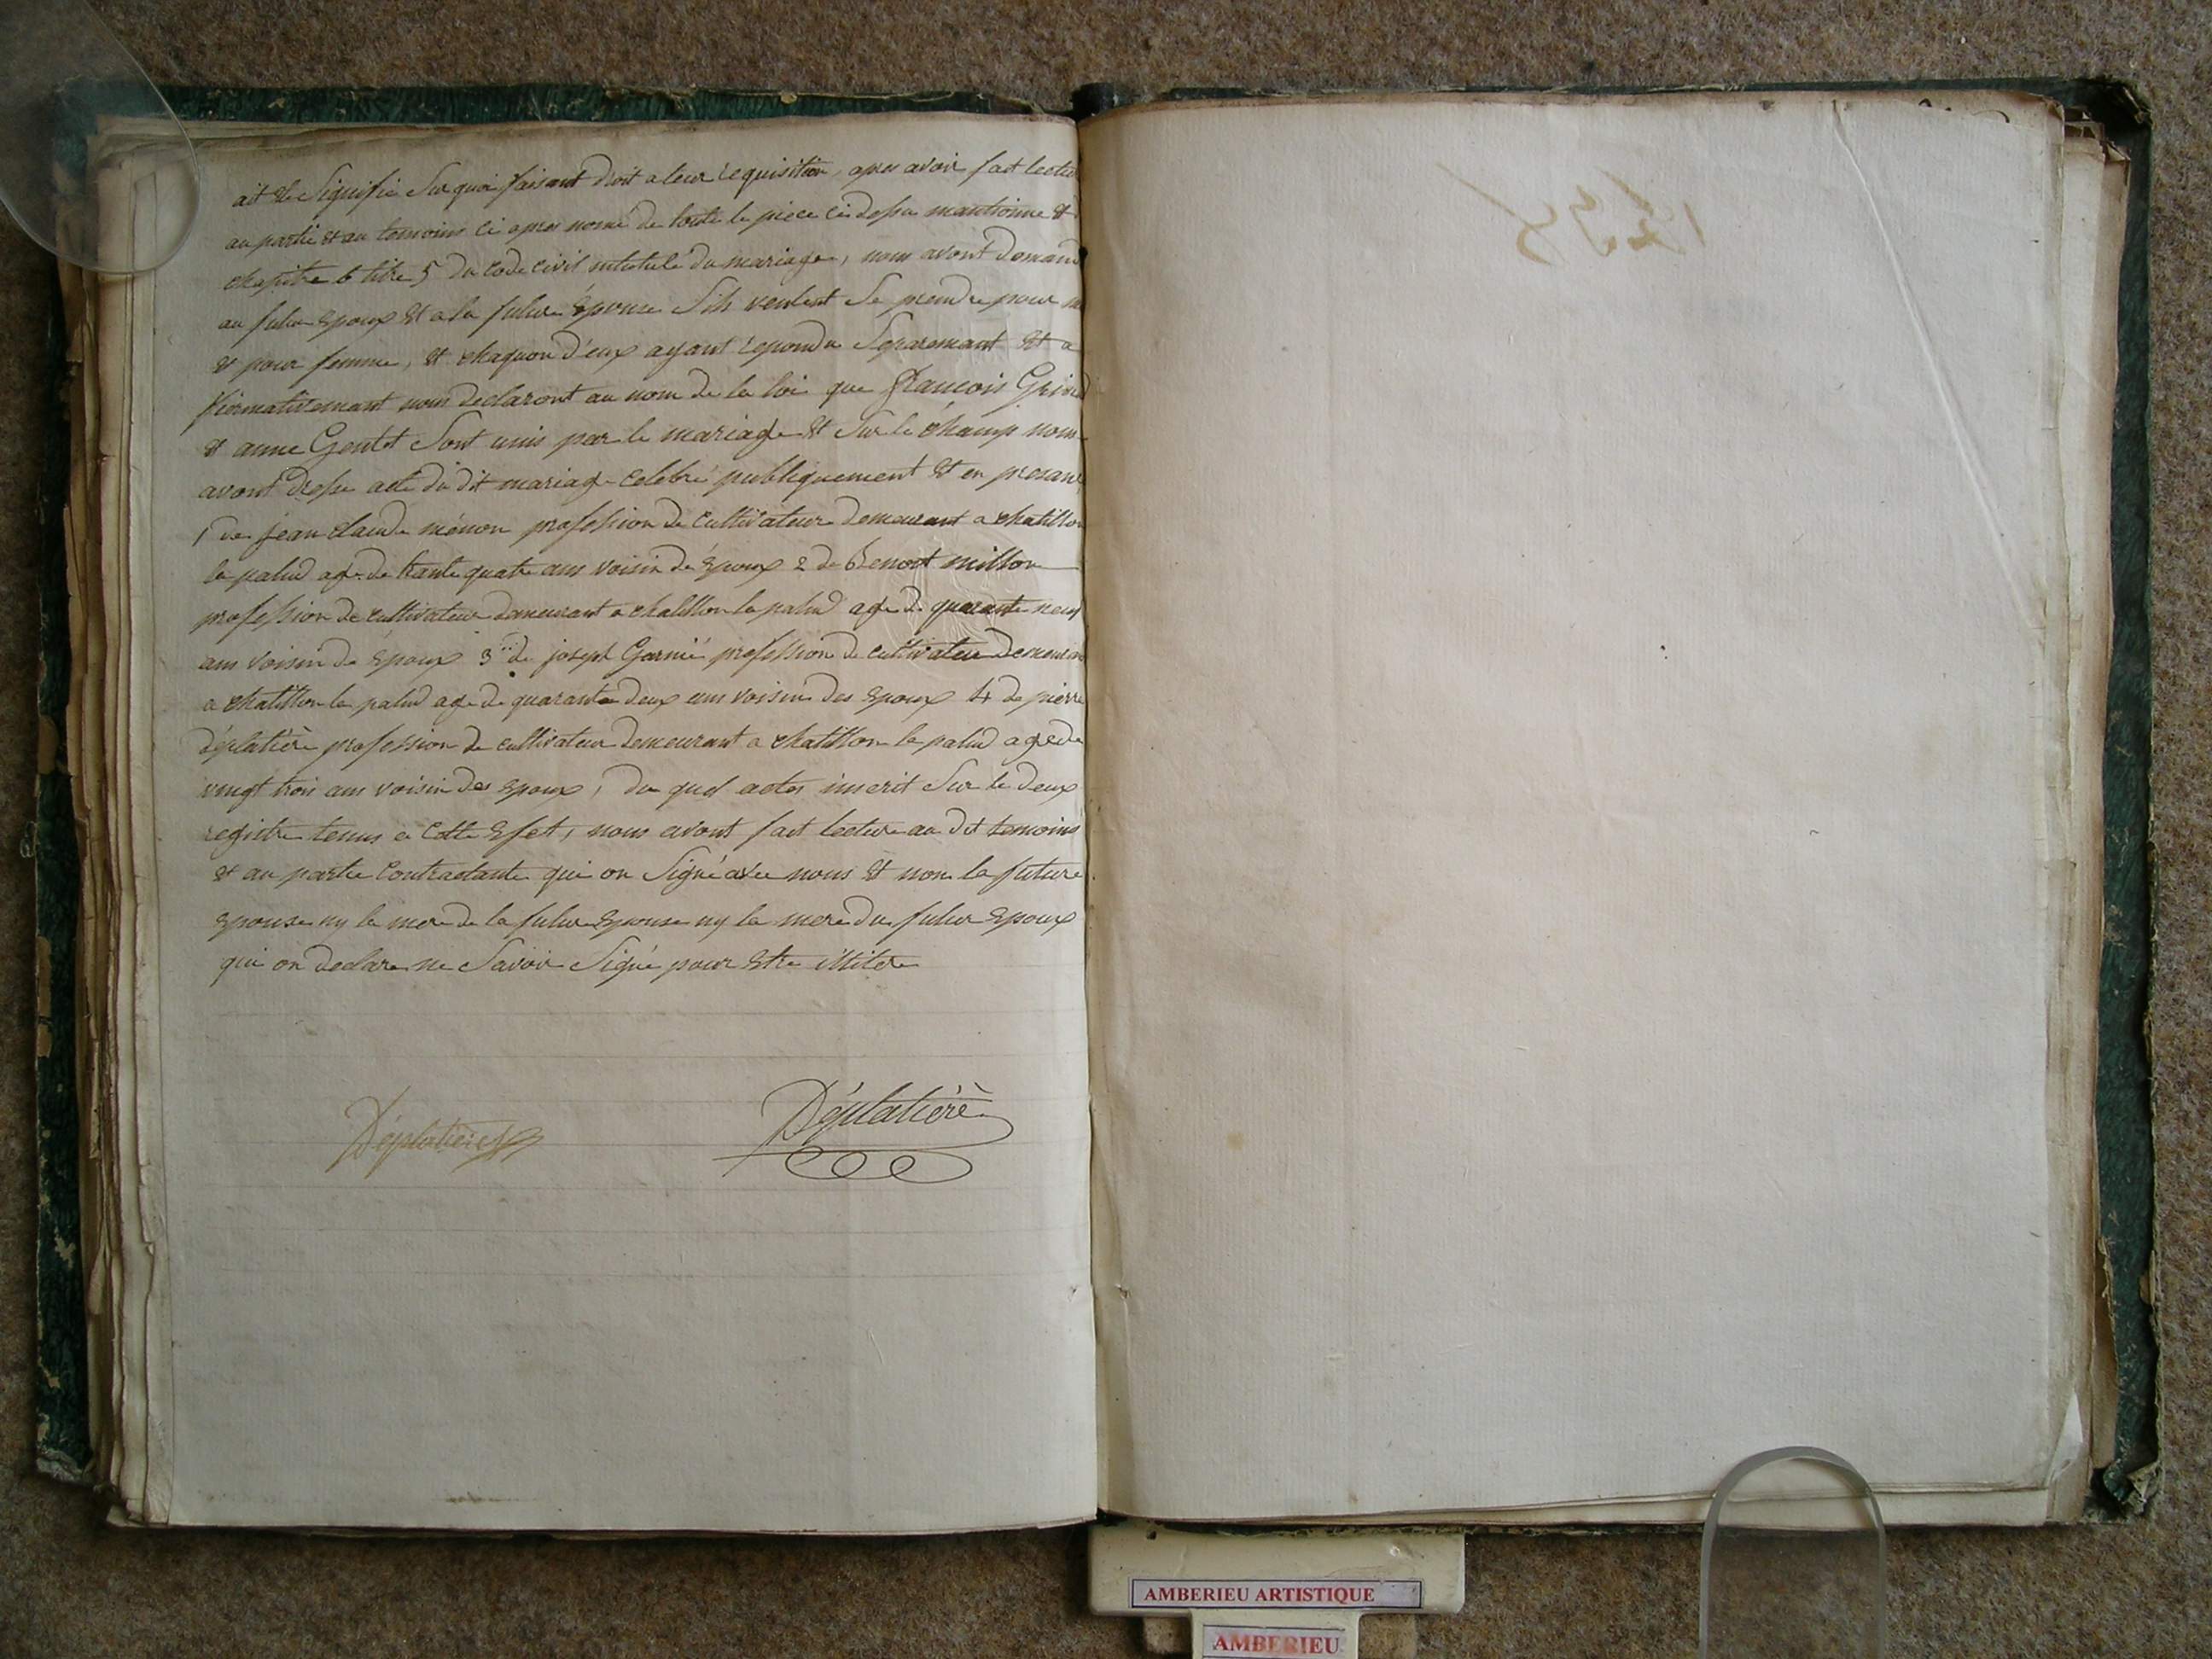 ait été Signifié Sur quoi faisant droit a leur requisition, apres avoir fait lectur
au partie et au temoins ci apres nomé de toute le piece ci dessu mantionné et
chapitre 6 titre 5 du Code Civil intitulé du mariage, nous avont demand
au futur Epoux et a la future Epouse S'ils veulent Se prendre pour m
et pour femme, et chaquon d'eux ayant repondu Separemant et a
firmativemant nous declaront au nom de la loi que francois
et anne Gentet Sont unis par le mariage et Sur le champ nous
avont dressé acte du dit mariage celebré publiquement et en presanc
1 de jean claude profession de Cultivateur demeurant a chatillon
la palud agé de trante quatre ans voisin de Epoux 2 de Benoit millon
profession de cultivateur demeurant a chatillon la palud agé de quarante neuf
ans voisin de Epoux 3 de joseph Garnié profession de cultivateur demeuran
a chatillon la palud agé de quarante deux ans voisin des Epoux 4 de pierre
déplatière profession de cultivateur demeurant a chatillon la palud agé de
vingt trois ans voisin des Epoux, du quel actes inscrit Sur le deux
registre tenus a cette Efet, nous avont fait lecture au dit temoins
et au partie Contractante qui on Signé avec nous et non la future
epouse ny la mere de la future Epouse ny la mere du futur Epoux
qui on declare ne Savoir Signé pour Etre
Déplatière Déplatière
AMBERIEU ARTISTIQUE
AMBERIEU